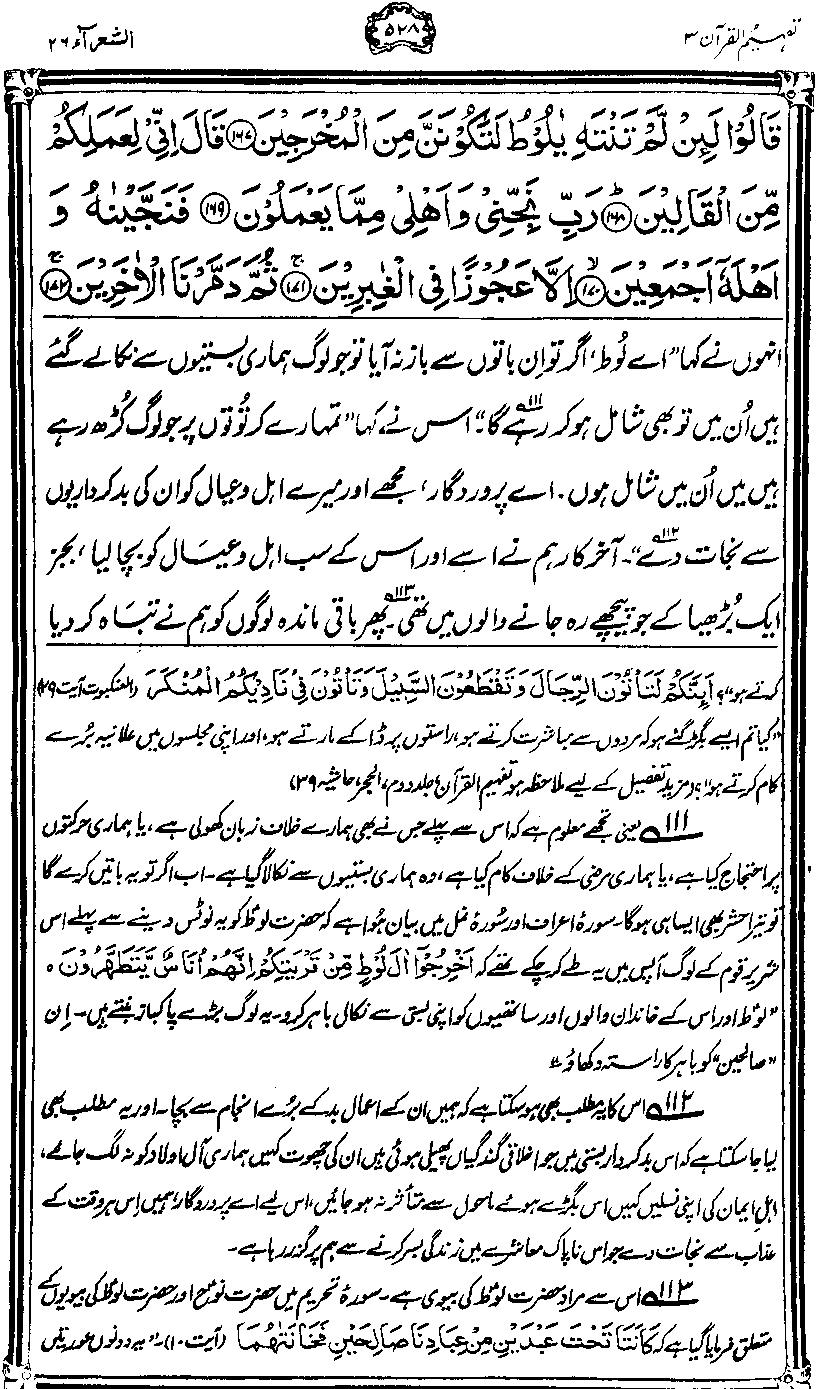 تفہیم القرآن ۳
۵۲۸
الشعرآء ۲۶
قَالُوْا لَىِٕنْ لَّمْ تَنْتَهِ یٰلُوْطُ لَتَكُوْنَنَّ مِنَ الْمُخْرَجِیْنَ ﴿۱۶۷﴾ قَالَ اِنِّیْ لِعَمَلِكُمْ
مِّنَ الْقَالِیْنَ ﴿۱۶۸﴾ؕ رَبِّ نَجِّنِیْ وَ اَهْلِیْ مِمَّا یَعْمَلُوْنَ ﴿۱۶۹﴾ فَنَجَّیْنٰهُ وَ
اَهْلَهٗۤ اَجْمَعِیْنَ ﴿۱۷۰﴾ۙ اِلَّا عَجُوْزًا فِی الْغٰبِرِیْنَ ﴿۱۷۱﴾ۚ ثُمَّ دَمَّرْنَا الْاٰخَرِیْنَ ﴿۱۷۲﴾ۚ
انہوں نے کہا ”اے لُوط، اگر تو اِن باتوں سے باز نہ آیا تو جو لوگ ہماری بستیوں سے نکالے گئے
ہیں اُن میں تو بھی شامل ہو کر رہے گا۱۱۱۔“ اس نے کہا ”تمہارے کرتُوتوں پر جو لوگ کُڑھ رہے
ہیں میں اُن میں شامل ہوں۔ اے پروردگار، مجھے اور میرے اہل و عیال کو ان کی بدکرداریوں
سے نجات دے۱۱۲“۔ آخرکار ہم نے اسے اور اس کے سب اہل و عیال کو بچا لیا، بجز
ایک بُڑھیا کے جو پیچھے رہ جانے والوں میں تھی۱۱۳۔ پھر باقی ماندہ لوگوں کو ہم نے تباہ کر دیا
کرتے ہو“؟ اَىِٕنَّكُمْ لَتَاْتُوْنَ الرِّجَالَ وَتَقْطَعُوْنَ السَّبِیْلَ وَتَاْتُوْنَ فِیْ نَادِیْكُمُ الْمُنْكَرَ (العنکبوت آیت ۲۹)
”کیا تم ایسے بگڑ گئے ہو کہ مردوں سے مباشرت کرتے ہو، راستوں پر ڈاکے مارتے ہو، اور اپنی مجلسوں میں علانیہ بُرے
کام کرتے ہو“؟ (مزید تفصیل کے لیے ملاحظہ ہو تفہیم القرآن، جلد دوم، الحجر، حاشیہ ۳۹)
۱۱۱ یعنی تجھے معلوم ہے کہ اس سے پہلے جس نے بھی ہمارے خلاف زبان کھولی ہے، یا ہماری حرکتوں
پر احتجاج کیا ہے، یا ہماری مرضی کے خلاف کام کیا ہے، وہ ہماری بستیوں سے نکالا گیا ہے۔ اب اگر تو یہ باتیں کرے گا
تو تیرا حشر بھی ایسا ہی ہوگا۔ سورۂ اعراف اور سُورۂ نمل میں بیان ہُوا ہے کہ حضرت لوطؑ کو یہ نوٹس دینے سے پہلے اس
شریر قوم کے لوگ آپس میں یہ طے کر چکے تھے کہ اَخْرِجُوْۤا اٰلَ لُوْطٍ مِّنْ قَرْیَتِكُمْ اِنَّهُمْ اُنَاسٌ یَّتَطَهَّرُوْنَ ہ
”لُوطؑ اور اس کے خاندان والوں اور ساتھیوں کو اپنی بستی سے نکال باہر کرو۔ یہ لوگ بڑے پاکباز بنتے ہیں۔ اِن
”صالحین“ کو باہر کا راستہ دکھاؤ“۔
۱۱۲ اس کا یہ مطلب بھی ہو سکتا ہے کہ ہمیں ان کے اعمالِ بد کے بُرے انجام سے بچا۔ اور یہ مطلب بھی
لیا جا سکتا ہے کہ اس بدکردار بستی میں جو اخلاقی گندگیاں پھیلی ہوئی ہیں ان کی چھوت کہیں ہماری آل اولاد کو نہ لگ جائے،
اہلِ ایمان کی اپنی نسلیں کہیں اس بگڑے ہوئے ماحول سے متأثر نہ ہو جائیں، اس لیے اے پروردگار، ہمیں اِس ہر وقت کے
عذاب سے نجات دے جو اس ناپاک معاشرے میں زندگی بسر کرنے سے ہم پر گذر رہا ہے۔
۱۱۳ اس سے مراد حضرت لوطؑ کی بیوی ہے۔ سورۂ تحریم میں حضرت نوحؑ اور حضرت لوطؑ کی بیویوں کے
متعلق فرمایا گیا ہے کہ كَانَتَا تَحْتَ عَبْدَیْنِ مِنْ عِبَادِنَا صَالِحَیْنِ فَخَانَتٰهُمَا (آیت ۱۰)۔ ”یہ دونوں عورتیں